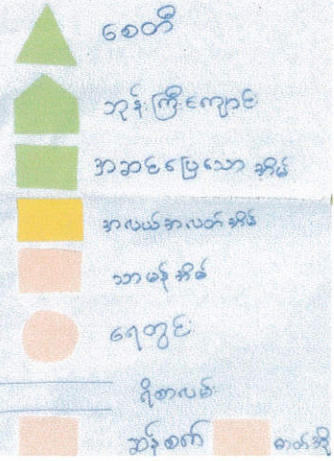 စေတီ
ဘုန်းကြီးကျောင်း
အဆင်ပြေသောအိမ်
အလယ်အလတ်အိမ်
သာမန်အိမ်
ရေတွင်း
ရိုစာလမ်း
ဆန်စက် ဓာတ်အို